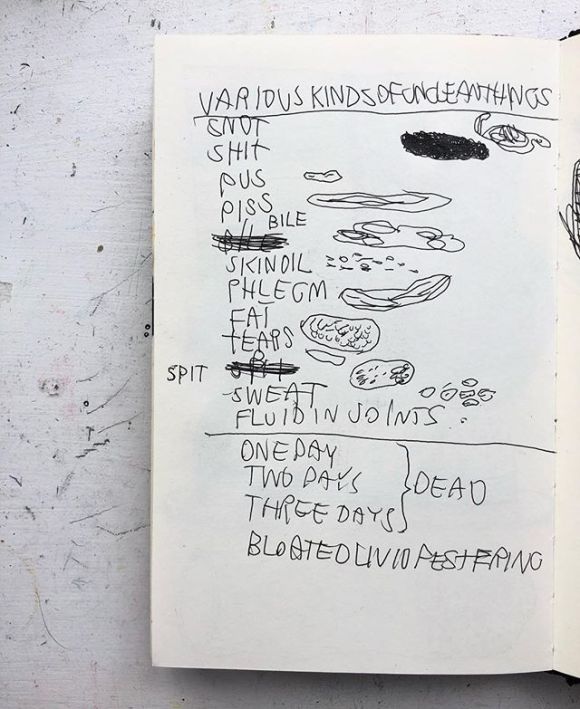 VARIOUS KINDS OF UNCLEAN THINGS
SNOT
SHIT
PUS
PISS
BILE
SKIN OIL
PHLEGM
FAT
TEARS
SPIT
SWEAT
FLUID IN JOINTS
ONE DAY
TWO DAYS
THREE DAYS
DEAD
BLOATED LIVID FESTERING